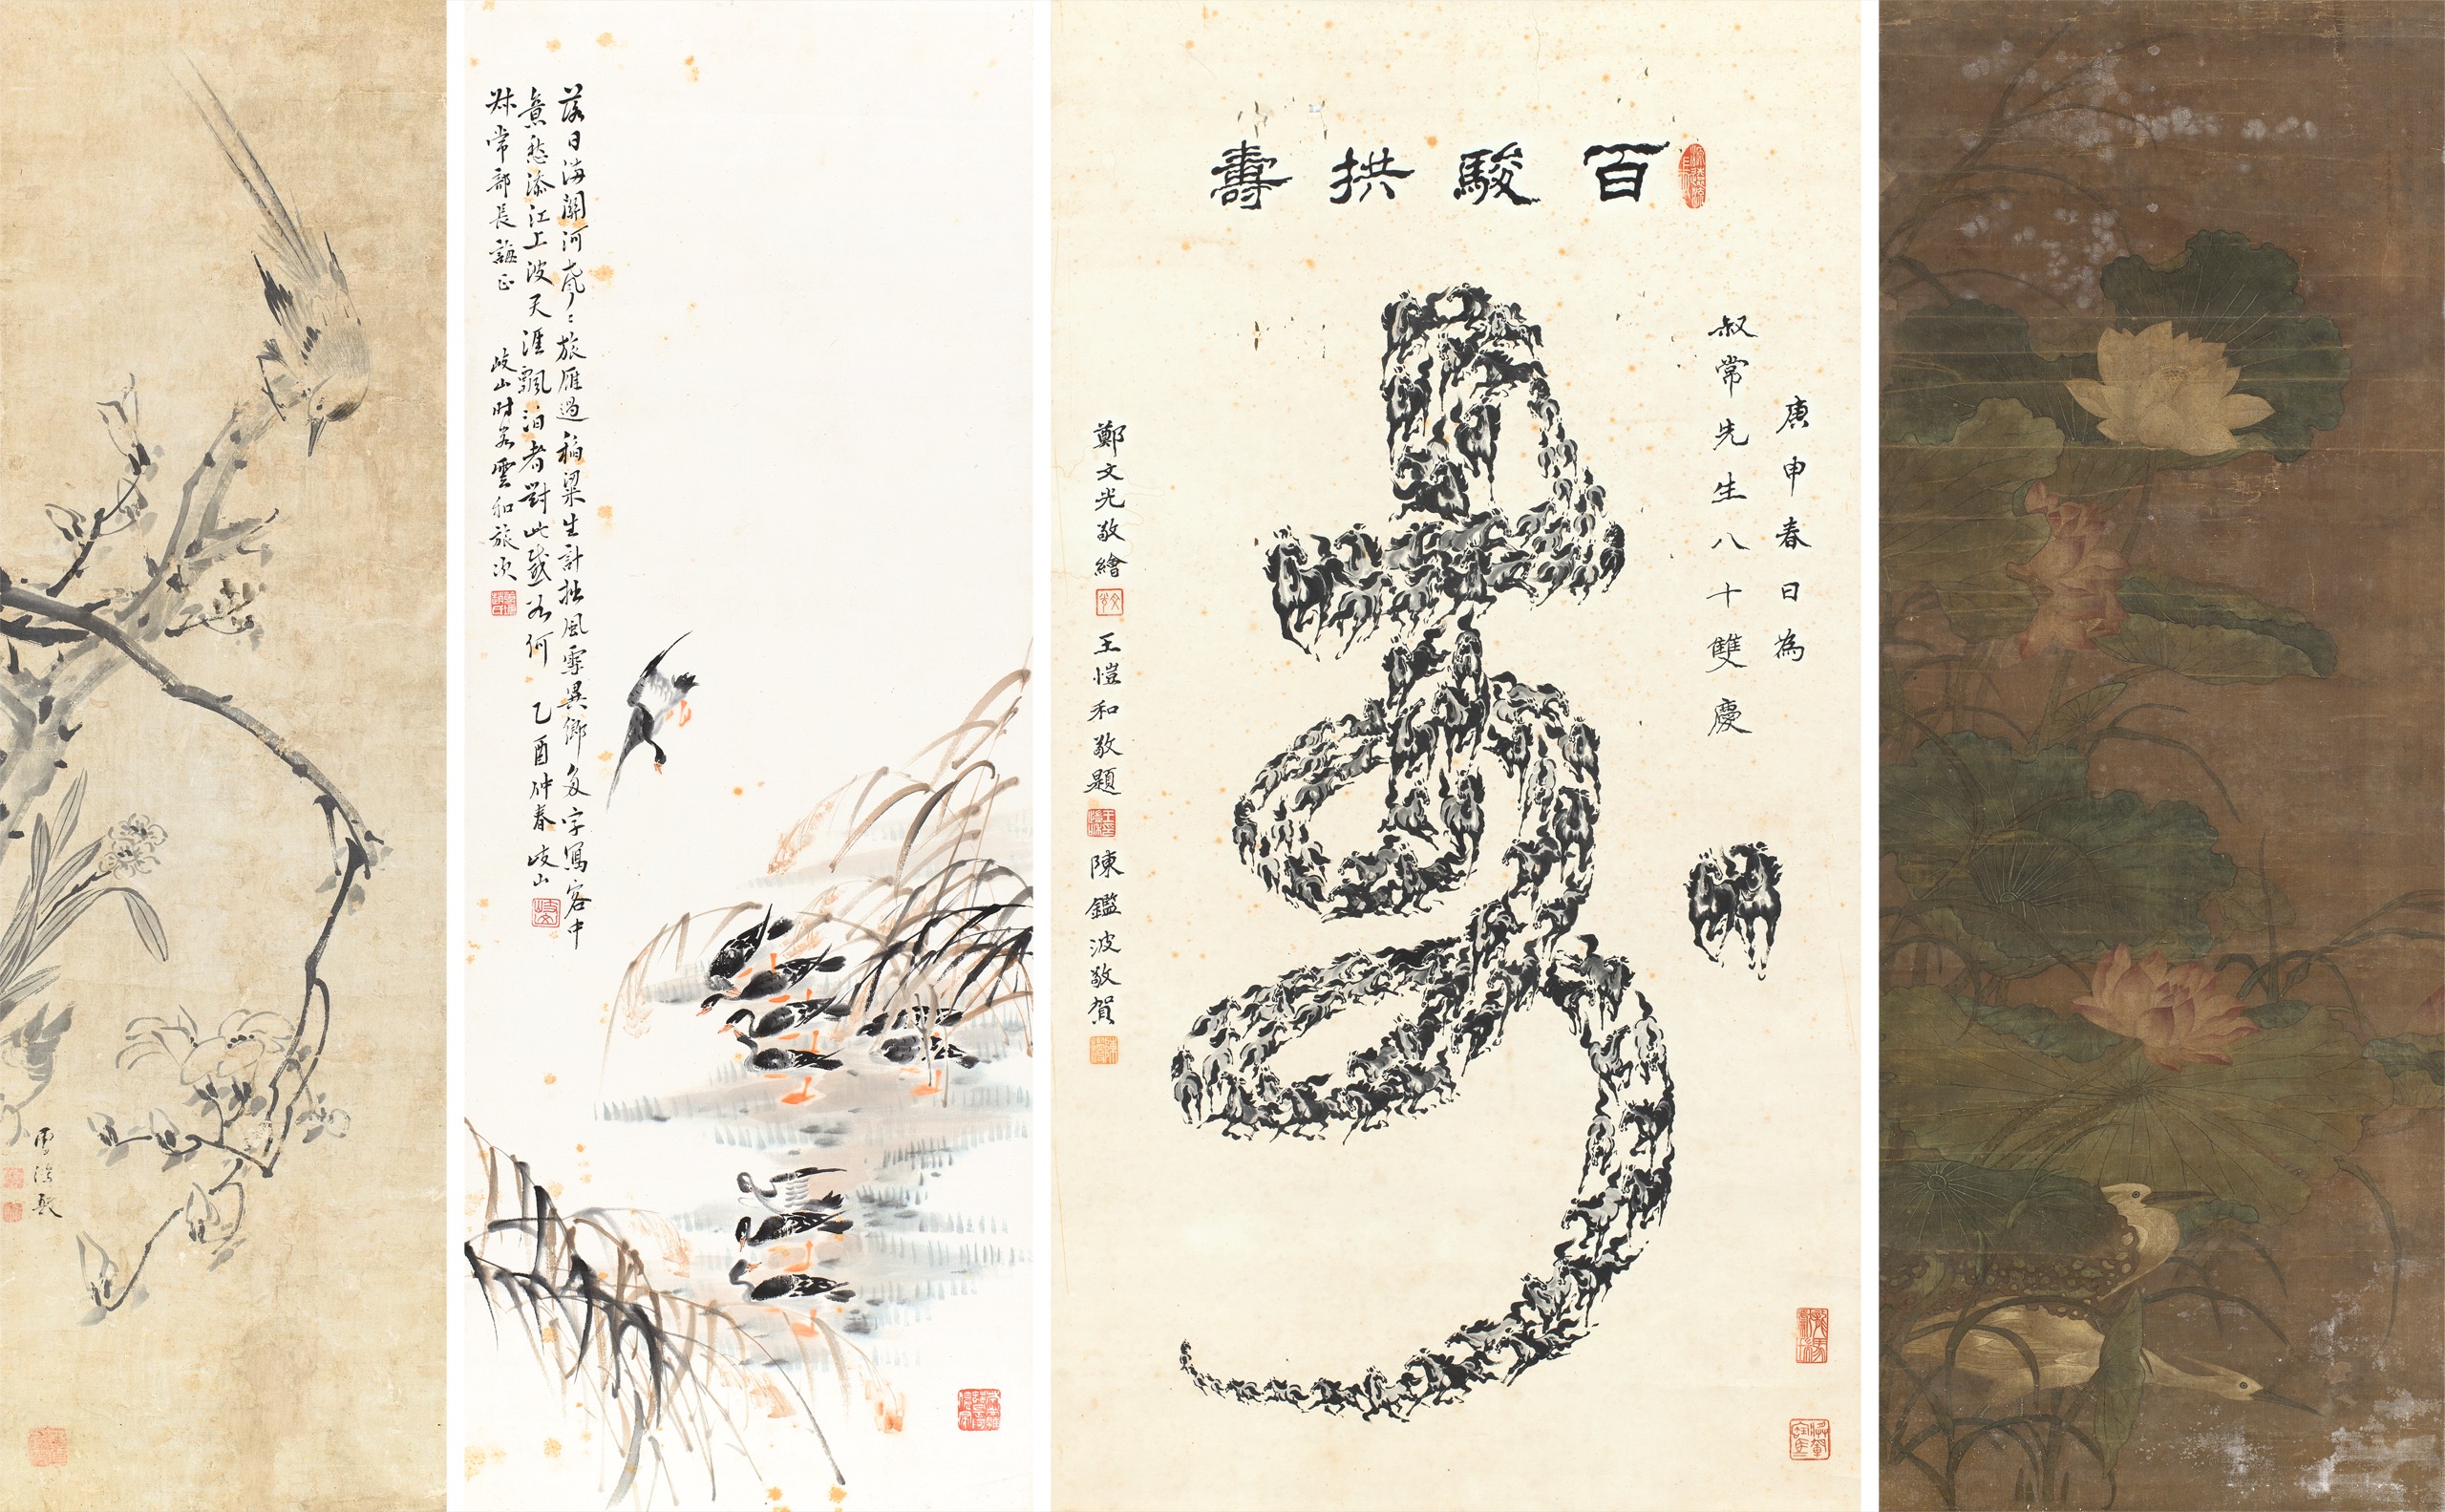 落日滿關河旅雁過稻粱生計拙風雪異鄉多字寫客中
意愁添江上波天涯飄泊者對此感如何 乙酉仲春 岐山
叔常部長誨正 岐山時客雲和旅次
百駿拱壽
庚申春日為
叔常先生八十雙慶
鄭文光敬繪 王愷和敬題 陳鑑波敬賀